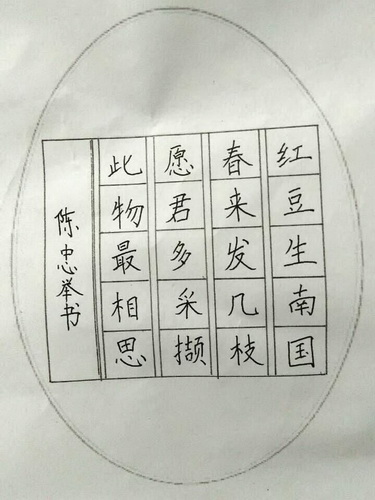 红豆生南国
春来发几枝
愿君多采撷
此物最相思
陈忠举书